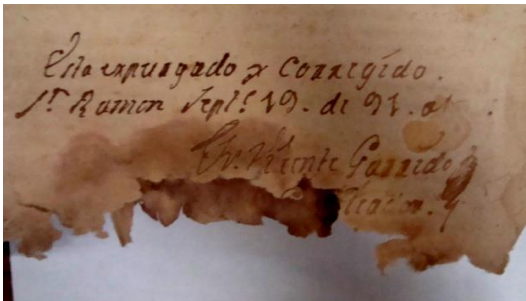 Esta expurgado y Corregido.
Sn. Ramon Septe. 19. de 91. a
Fr. Vicente Garrido